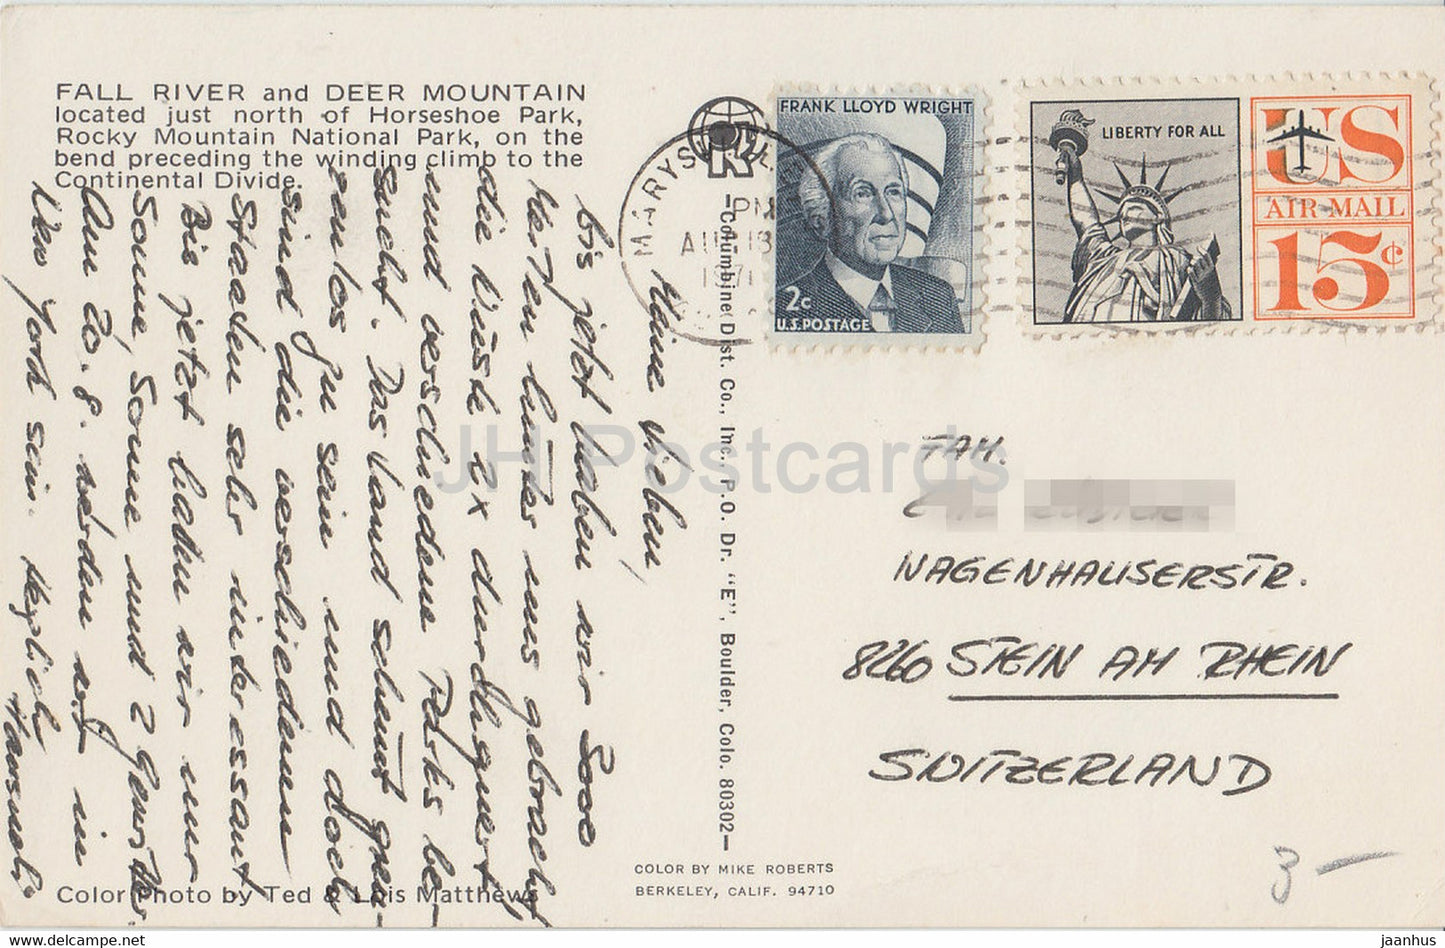 FALL RIVER and DEER MOUNTAIN
located just north of Horseshoe Park,
Rocky Mountain National Park, on the
bend preceding the winding climb to the
Continental Divide.
Meine Lieben,
bis jetzt haben wir 3000
Meilen hinter uns gebracht
die Wüste 2x durchquert
und verschiedene Parks be-
sucht. Das Land scheint gren-
zenlos zu sein und doch
sind die verschiedenen
Staaten sehr interessant
Bis jetzt hatten wir nur
Sonne, Sonne und 2 Gewitter.
Am 20.8. werden wir in
New York sein. Herzlich
Color Photo by Ted & Lois Matthews
Columbine Dist. Co., Inc., P.O. Dr. "E", Boulder, Colo. 80302
COLOR BY MIKE ROBERTS
BERKELEY, CALIF. 94710
MARYSVILL
PM
AUG 13
1971
FRANK LLOYD WRIGHT
2c
U.S. POSTAGE
LIBERTY FOR ALL
US
AIR MAIL
15¢
FAM.
WAGENHAUSERSTR.
8260 STEIN AM RHEIN
SWITZERLAND
3 —
JH Postcards
www.delcampe.net
jaanhus